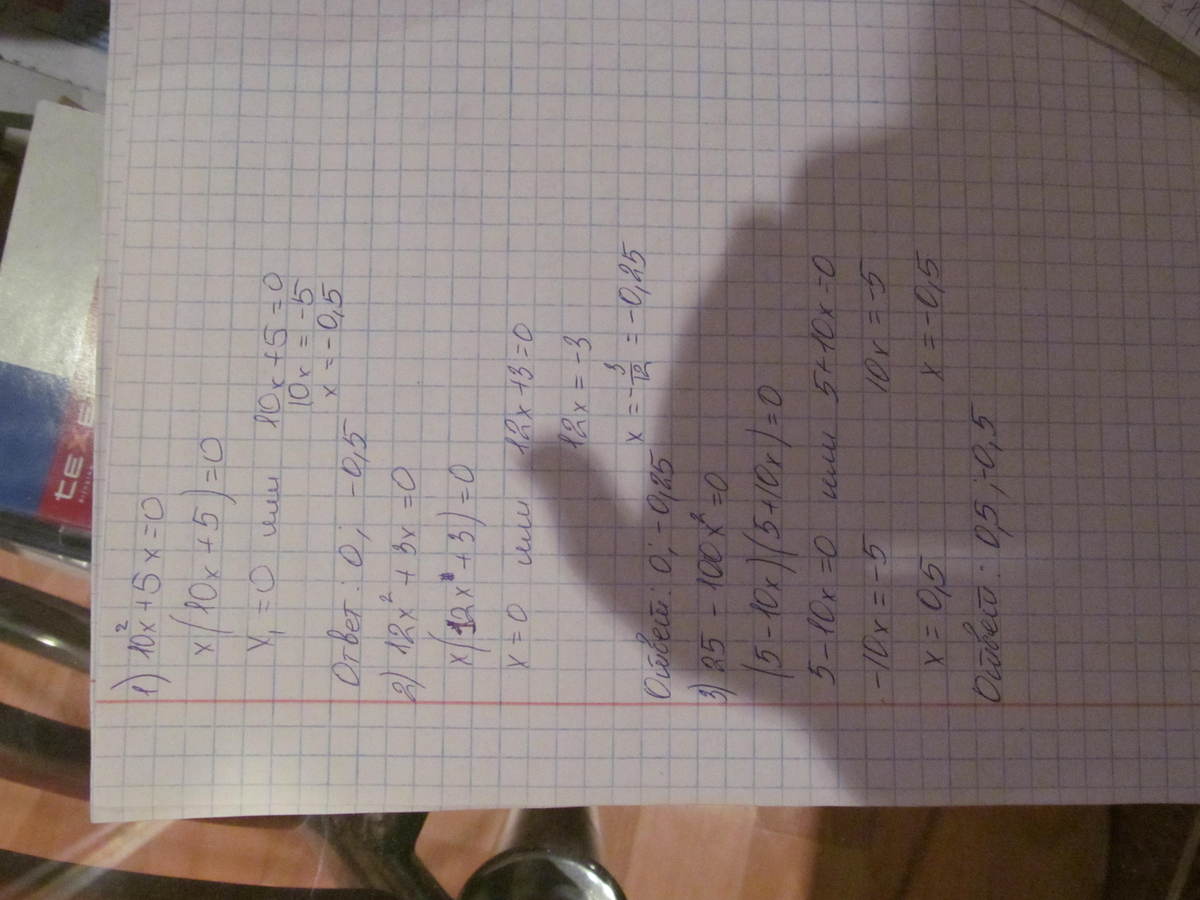 1) 10x²+5x=0
x(10x+5)=0
x₁=0 или 10x+5=0
10x=-5
x=-0,5
Ответ: 0; -0,5
2) 12x²+3x=0
x(12x+3)=0
x=0 или 12x+3=0
12x=-3
x=-3/12=-0,25
Ответ: 0; -0,25
3) 25-100x²=0
(5-10x)(5+10x)=0
5-10x=0 или 5+10x=0
-10x=-5 10x=-5
x=0,5 x=-0,5
Ответ: 0,5; -0,5